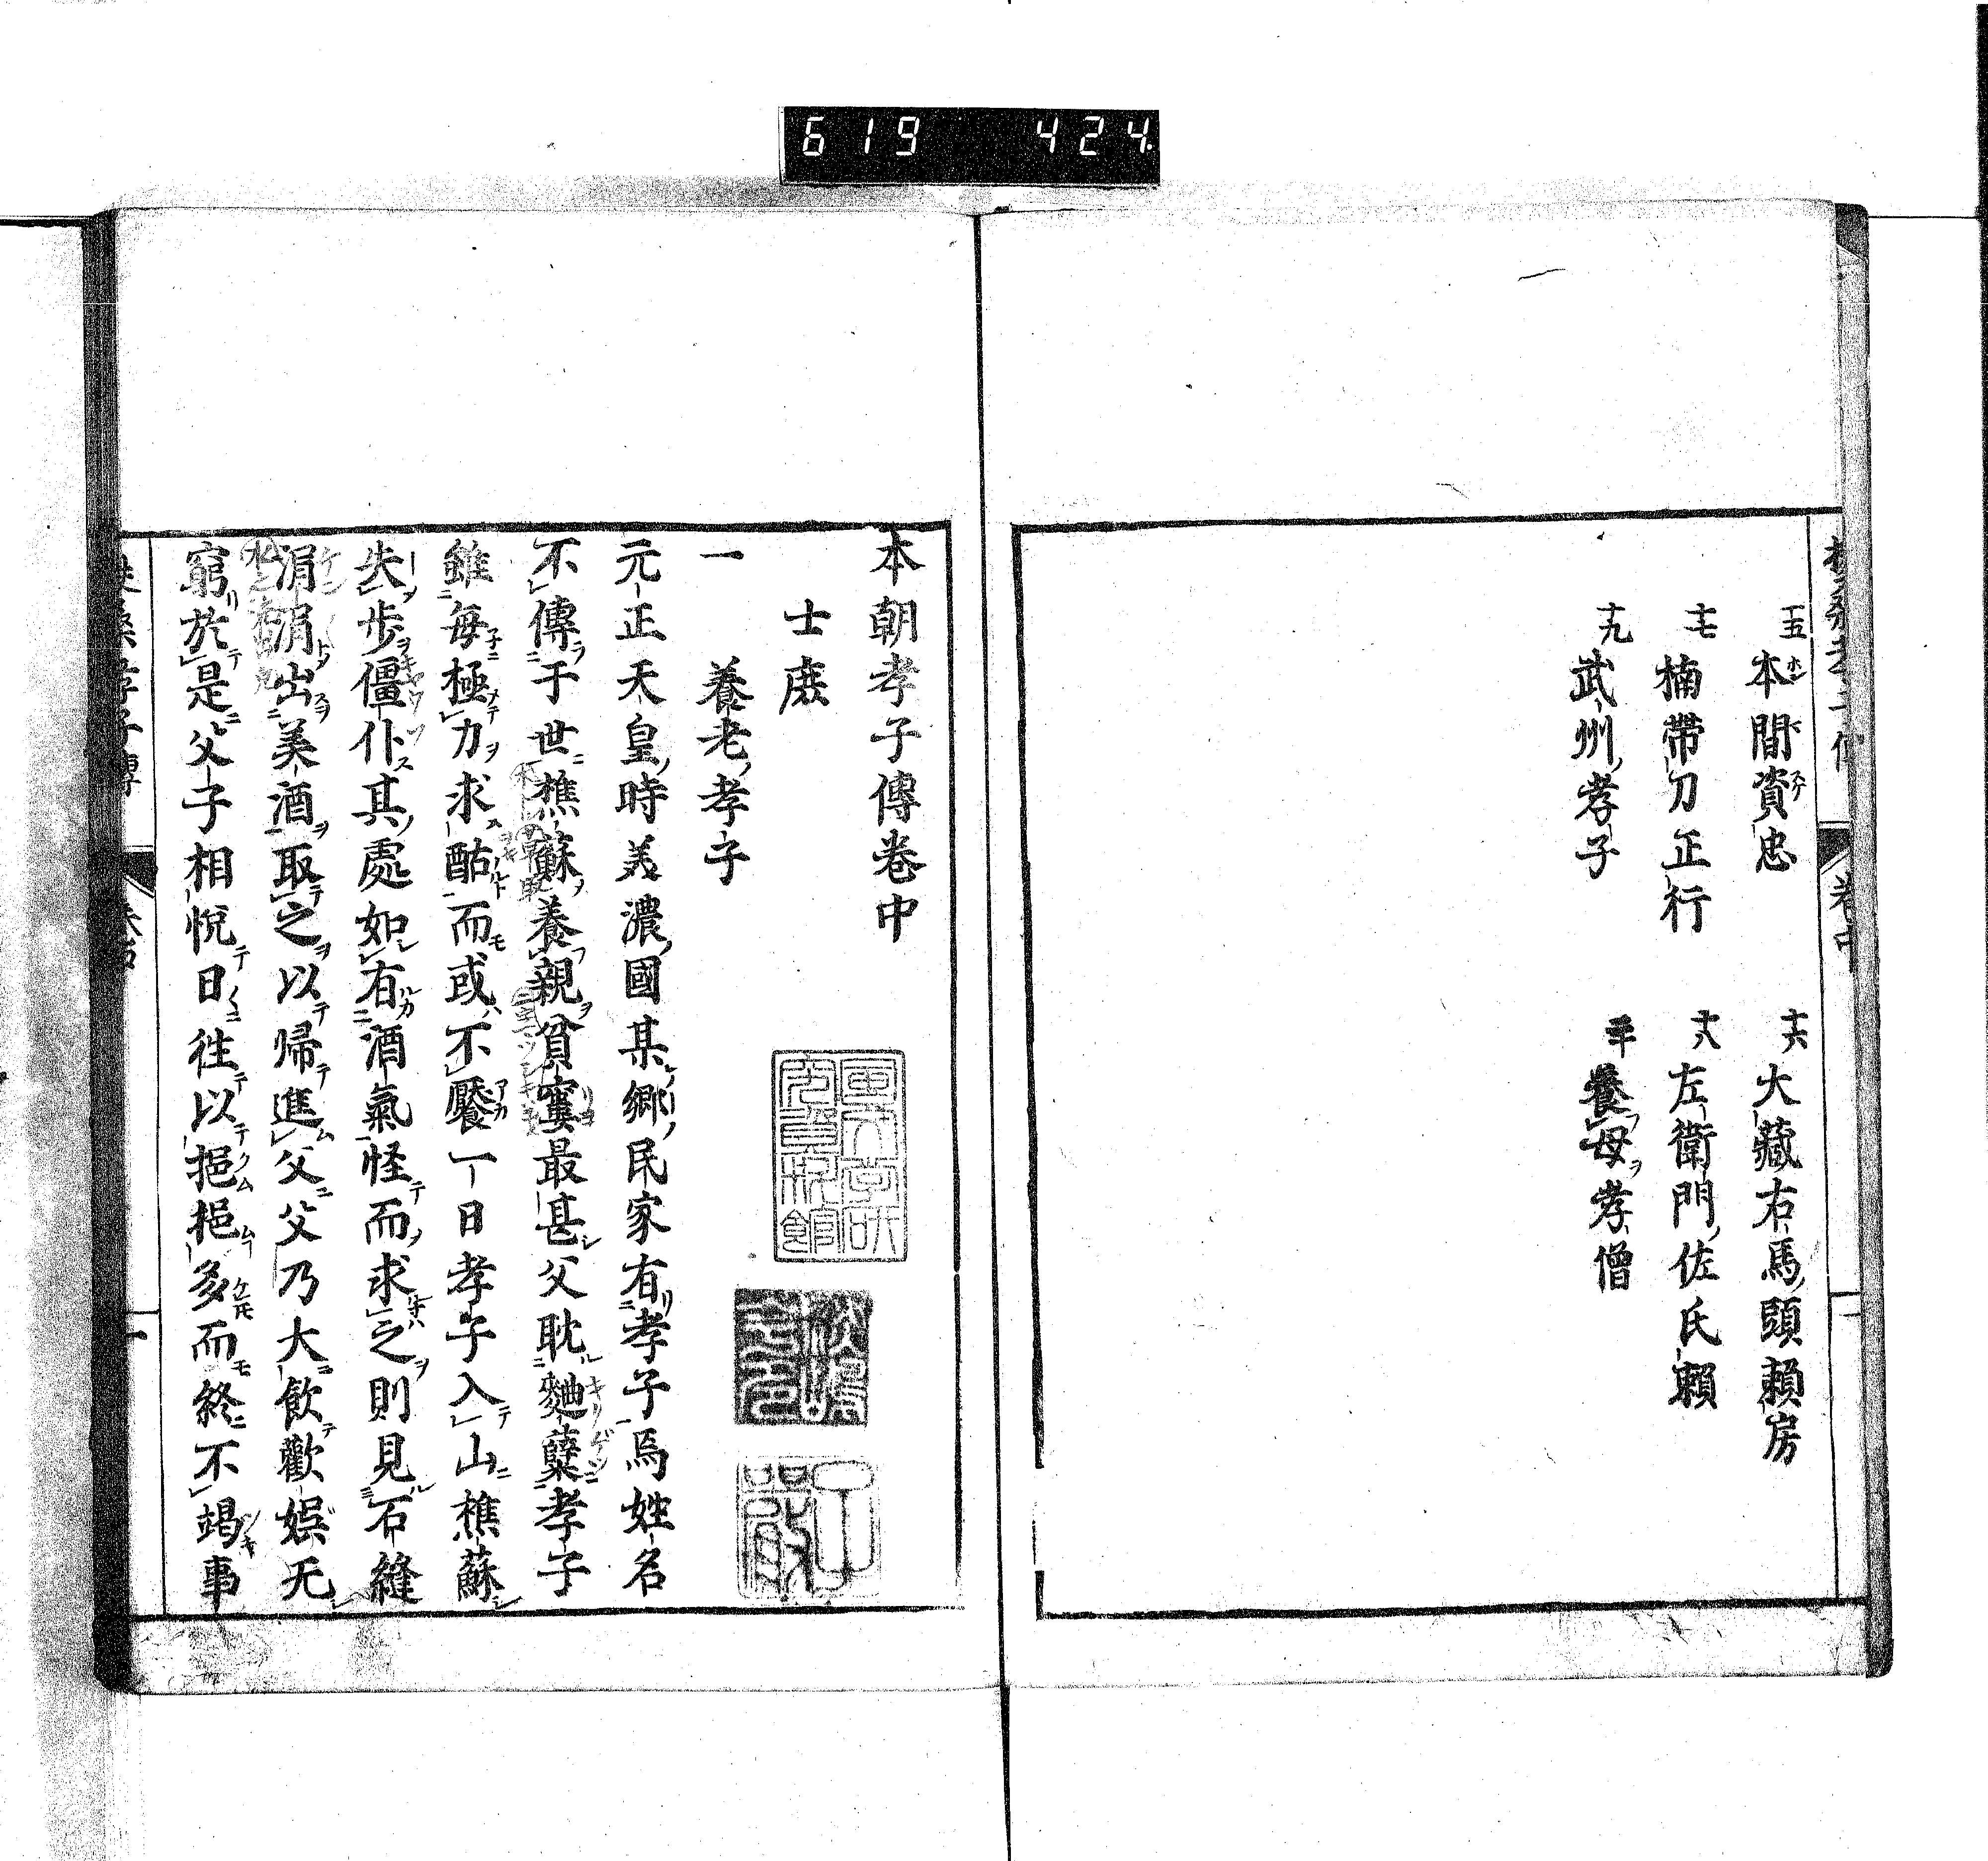 619 424.
十五 本間資忠
十六 大藏右馬頭賴房
十七 楠帶刀正行
十八 左衛門佐氏賴
十九 武州孝子
二十 養母孝僧
卷中
本朝孝子傳卷中
士庶
一 養老孝子
元正天皇時美濃國某鄉民家有孝子焉姓名
不傳于世樵蘇養親貧窶最甚父耽麯糵孝子
雖每極力求酤而或不饜一日孝子入山樵蘇
失步僵仆其處如有酒氣怪而求之則見石縫
涓涓出美酒取之以帰進父父乃大飲歡娯无
窮於是父子相悅日往以挹挹多而終不竭事